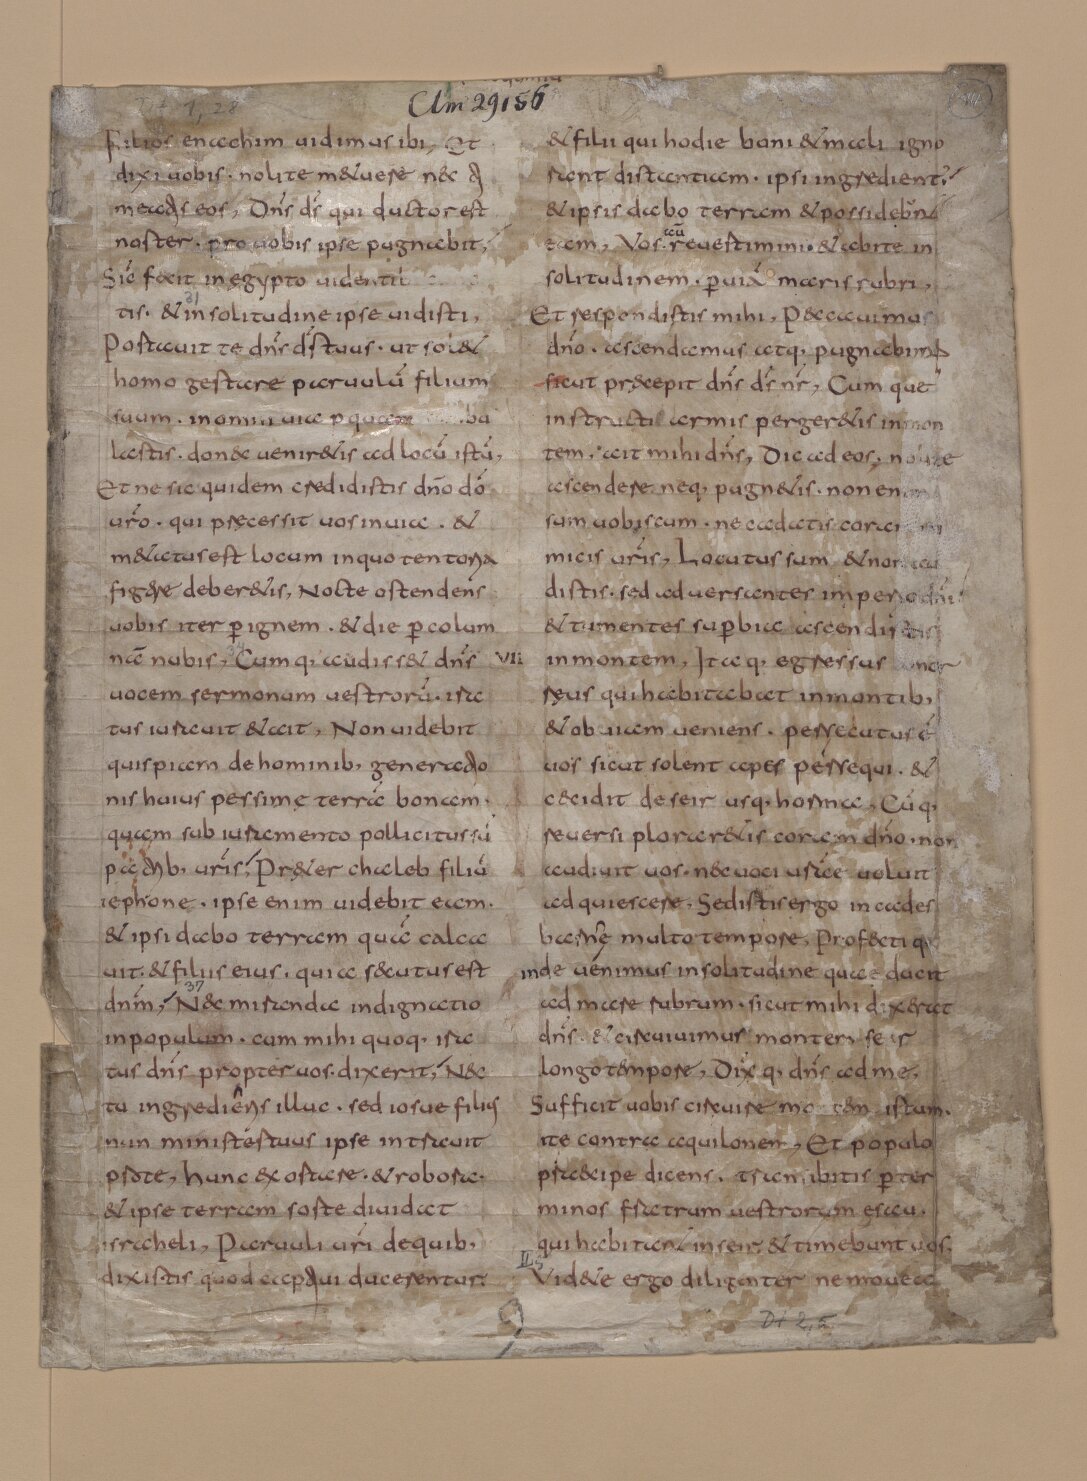 Clm 29156
Dt 1,28
Filios enachim uidimus ibi, Et
dixi uobis. nolite metuere nec
eos, Dn̄s ds̄ qui ductor est
noster. pro uobis ipse pugnabit,
Sic̄ fecit in egypto uidentib
31
tis. & in solitudine ipse uidisti,
Portauit te dn̄s ds̄ tuus. ut sol&
homo gestare paruulū filium
suum. in omni uia p̄ quam bu
lastis. donec uenir&is ad locū istū,
Et ne sic quidem credidistis dn̄o dō
ur̄o. qui precessit uos in uia. &
m&atus est locum in quo tentoria
figere deber&is, Nocte ostendens
uobis iter p̄ ignem. & die p̄ colum
nā nubis, Cumq, audiss& dn̄s
uocem sermonum uestrorū. ira
tus iurauit & ait, Non uidebit
quispiam de hominib, generatio
nis huius pessime terrā bonam.
quam sub iuramento pollicitus sū
patrib, ur̄is, Pr&er chaleb filiū
iephone. ipse enim uidebit eam.
& ipsi dabo terram quā calca
uit. & filiis eius. quia secutus est
dn̄m, Nec miranda indignatio
37
in populum. cum mihi quoq, ira
tus dn̄s propter uos. dixerit, Nec
tu ingredieris illuc. sed iosue filius
nun minister tuus ipse intrauit
p̄ te, hunc exortare. & robora.
& ipse terram sorte diuidat
israheli, Paruuli ur̄i de quib,
dixistis quod captiui ducerentur.
& filii qui hodie boni & mali igno
rant distantiam. ipsi ingredient.
& ipsis dabo terram & possidebun̄
eam, Vos aū reuertimini. & abite in
solitudinem. p̄ uiā maris rubri,
Et respondistis mihi, Peccauimus
dn̄o. ascendamus atq, pugnabim,
sicut precepit dn̄s ds̄ nr̄, Cumque
instructi armis perger&is in mon
tem, ait mihi dn̄s, Dic ad eos, nolite
ascendere neq, pugn&is. non enim
sum uobiscum. ne cadatis coram ini
micis ur̄is, Locutus sum & non au
distis. sed aduersantes imperio dn̄i
& tumentes sup̄bia ascendistis
VII in montem, Itaq, egressus amor
reus qui habitabat in montib,
& obuiam ueniens. persecutus ē
uos sicut solent apes persequi. &
cecidit de seir usq, horma, Cūq,
reuersi plorar&is coram dn̄o. non
audiuit uos. nec uoci ur̄ae uoluit
adquiescere. Sedistis ergo in cades
barne multo tempore, Profectiq,
inde uenimus in solitudine quae ducit
ad mare rubrum. sicut mihi dixerat
dn̄s. & circuiuimus montem seir
longo tempore, Dixq, dn̄s ad me,
Sufficit uobis circuire montem istum.
ite contra aquilonem, Et populo
precipe dicens. transibitis p̄ ter
minos fratrum uestrorum esau.
qui habitant in seir & timebunt uos.
II,5
Vid&e ergo diligenter ne mouea
Dt 2,5